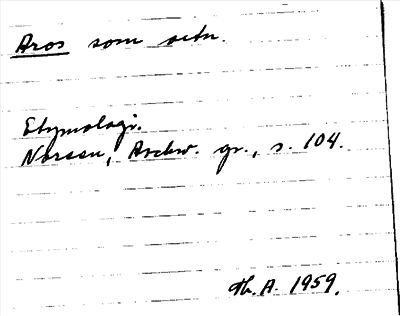 Aros som ortn.
Etymologi.
Noreen, Aschw. gr., s. 104.
Th. A. 1959.